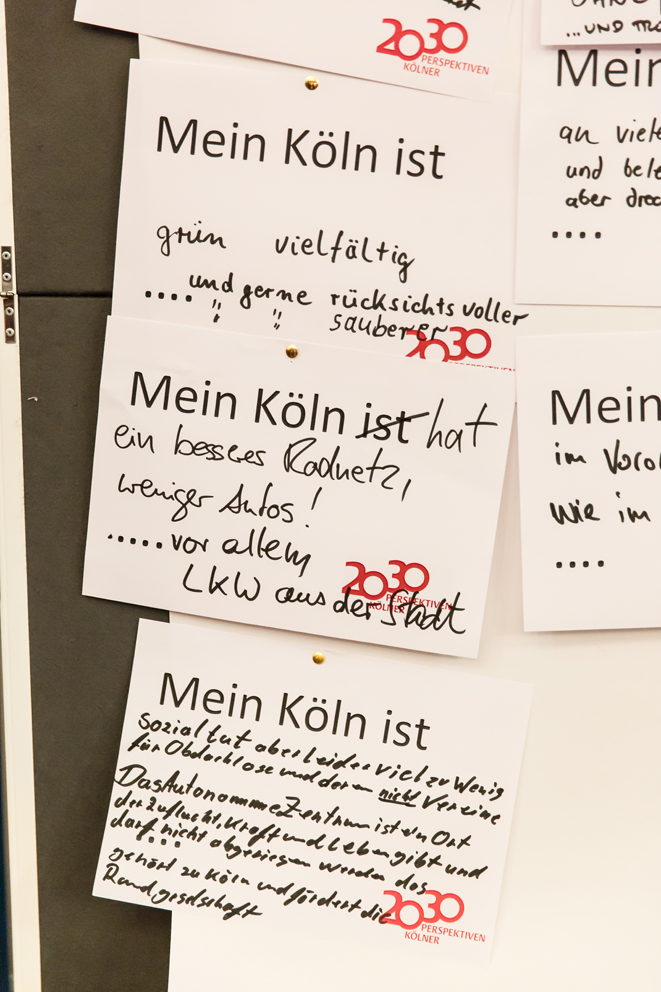 2030
PERSPEKTIVEN
KÖLNER
Mein Köln ist
grün vielfältig
.... und gerne rücksichtsvoller
" " sauberer
2030
Mein Köln ist hat
ein besseres Radnetz,
weniger Autos!
..... vor allem
LKW aus der Stadt
2030
PERSPEKTIVEN
KÖLNER
Mein Köln ist
Sozial tut aber leider viel zu wenig
für Obdachlose und deren nicht Vereine
Das Autonome Zentrum ist ein Ort
der Zuflucht, Kraft und Leben gibt und
darf nicht abgerissen werden das
...
gehört zu Köln und fördert die
Randgesellschaft
2030
PERSPEKTIVEN
KÖLNER
...UND
Mein
an viele
und
aber
....
Mein
im
wie im
....